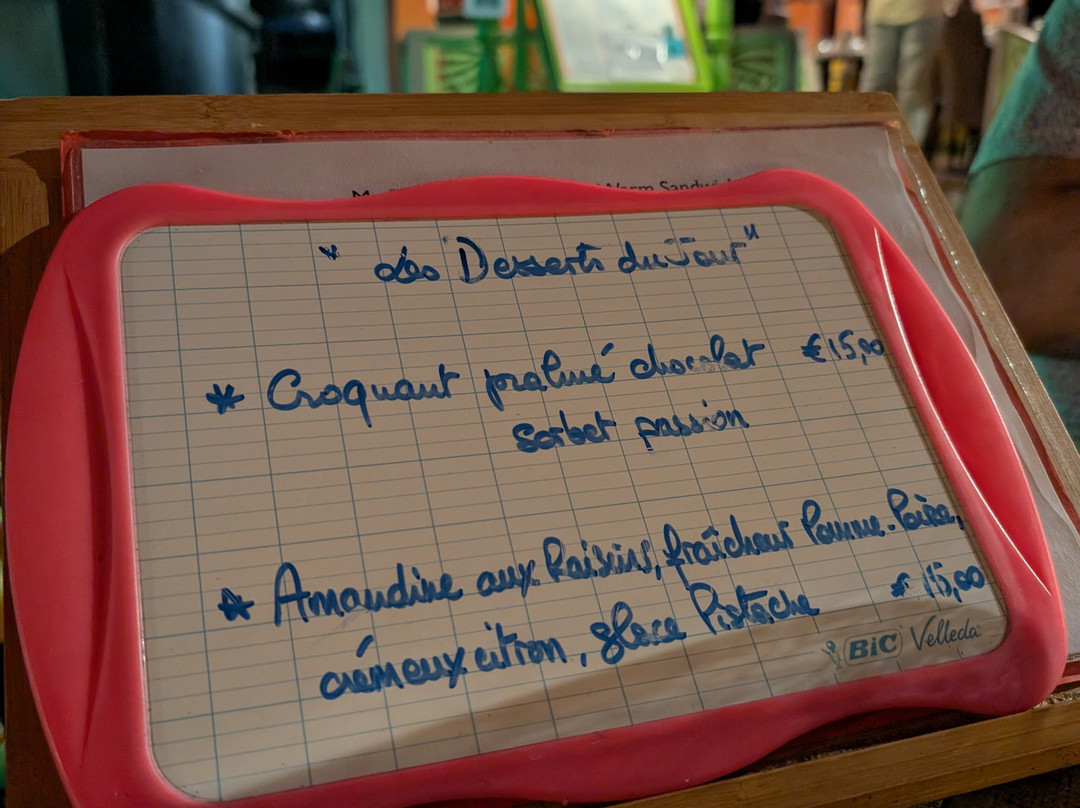 Warm Sandwi
" Les Desserts du Jour "
* Croquant praliné chocolat €15,00
sorbet passion
* Amandine aux Raisins, fraîcheur Pomme-Poire,
crémeux citron, glace Pistache € 15,00
BIC Velleda